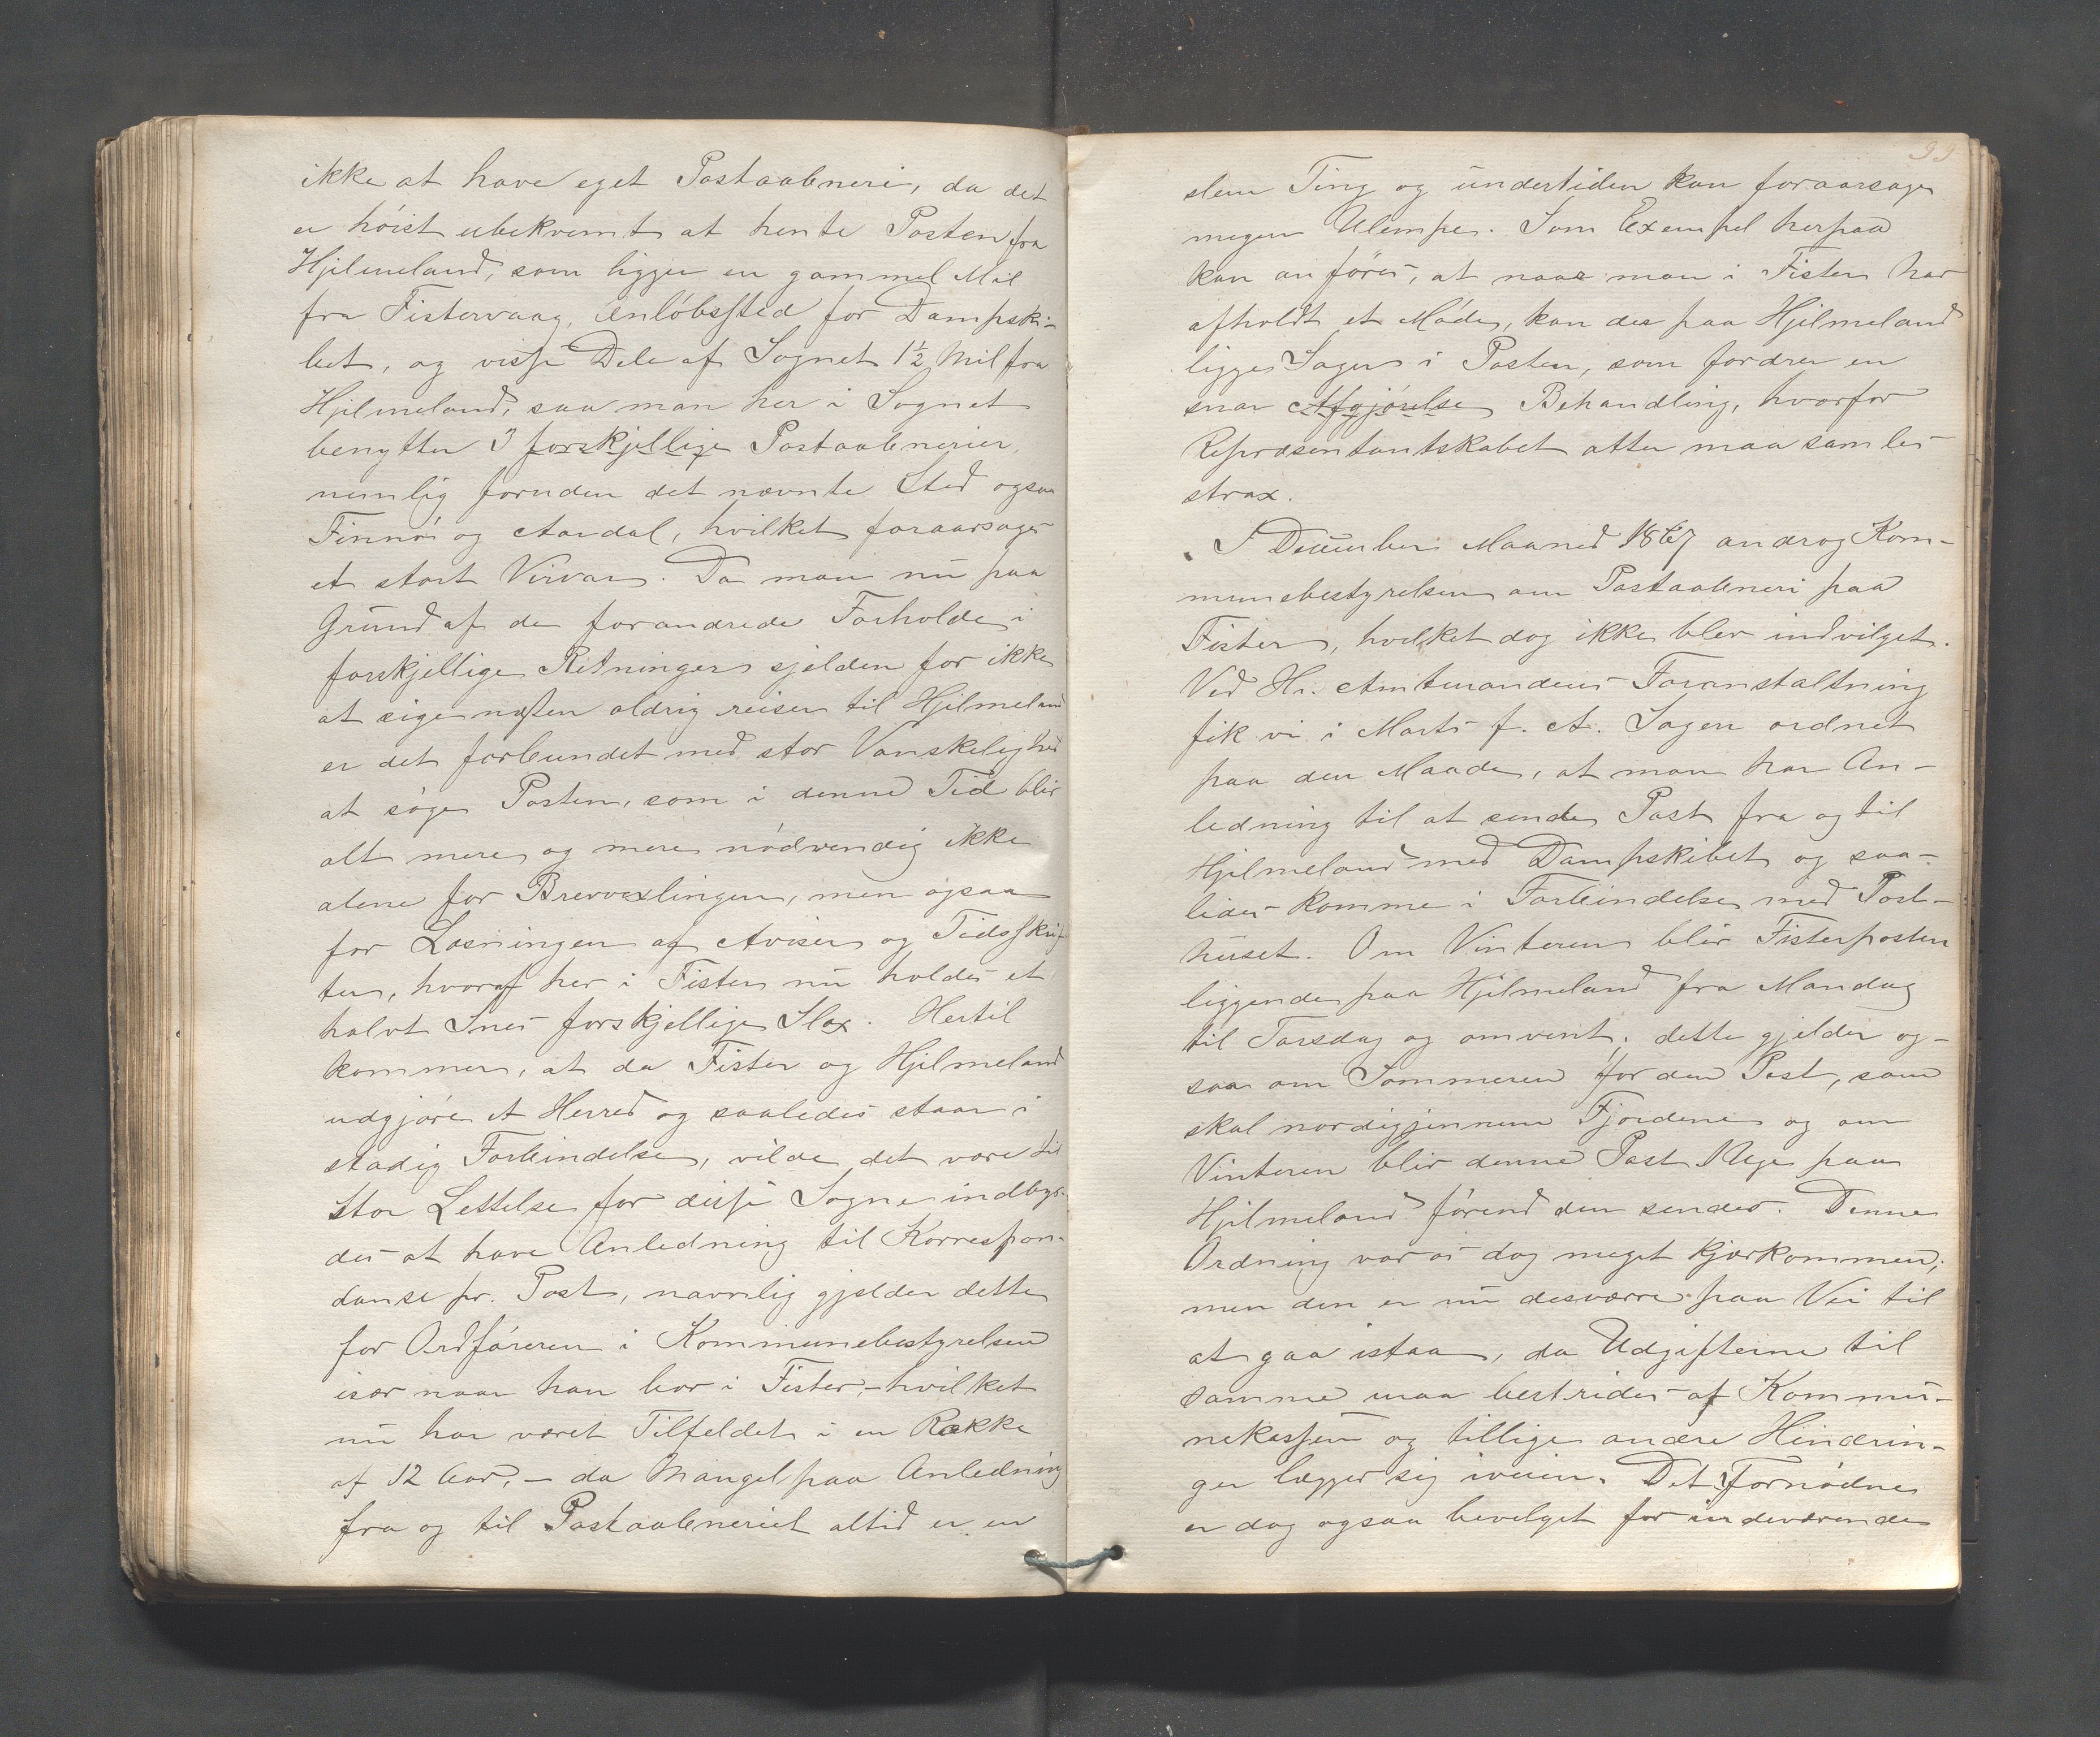 ikke at have eget Postaabneri, da det
er höist ubekvemt at hente Posten fra
Hjelmeland, som ligger en gammel Mil
fra Fistervaag, Anlöbssted for Dampski-
bet, og visse Dele af Sognet 1½ Mil fra
Hjelmeland, saa man her i Sognet
benytter 3 forskjellige Postaabnerier,
nemlig foruden det nævnte Sted ogsaa
Finnö og Aardal, hvilket foraarsager
et stort Virvar. Da man nu paa
Grund af de forandrede Forholde i
forskjellige Retninger sjelden for ikke
at sige næsten aldrig reiser til Hjelmeland
er det forbundet med stor Vanskelighed
at söge Posten, som i denne Tid blir
alt mere og mere nödvendig ikke
alene for Brevvexlingen, men ogsaa
for Læsningen af Aviser og Tidsskrif-
ter, hvoraf her i Fister nu holdes et
halvt Snes forskjellige Slag. Hertil
kommer, at da Fister og Hjelmeland
udgjöre et Herred og saaledes staar i
stadig Forbindelse, vilde det være til
stor Lettelse for disse Sogne indbyr-
des at have Anledning til Korrespon-
danse pr. Post, navnlig gjelder dette
for Ordföreren i Kommunebestyrelsen
især naar han bor i Fister, – hvilket
nu har været Tilfeldet i en Række
af 12 Aar, – da Mangel paa Anledning
fra og til Postaabneriet altid er en
99
slem Ting og undertiden kan foraarsage
megen Ulempe. Som Exempel herpaa
kan anföres, at naar man i Fister har
afholdt et Möde, kan der paa Hjelmeland
ligge Sager i Posten, som fordrer en
snar Afgjörelse Behandling, hvorfor
Repræsentantskabet atter maa samles
strax.
I December Maaned 1867 androg Kom-
munebestyrelsen om Postaabneri paa
Fister, hvilket dog ikke blev indvilget.
Ved Hr. Amtmandens Foranstaltning
fik vi i Marts f. A. Sagen ordnet
paa den Maade, at man har An-
ledning til at sende Post fra og til
Hjelmeland med Dampskibet og saa-
ledes komme i Forbindelse med Post-
huset. Om Vinteren blir Fisterposten
liggende paa Hjelmeland fra Mandag
til Torsdag og omvent; dette gjelder og-
saa om Sommeren for den Post, som
skal nordigjennem Fjordene og om
Vinteren blir denne Post 1 Uge paa
Hjelmeland förend den sendes. Denne
Ordning var os dog meget kjærkommen;
men den er nu desværre paa Vei til
at gaa istaa, da Udgifterne til
samme maa bestrides af Kommu-
nekassen og tillige andre Hindrin-
ger lægger sig iveien. Det Fornödne
er dog ogsaa bevilget for indeværende